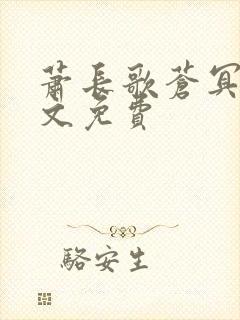 蕭長歌蒼冥
文免費
駱安生